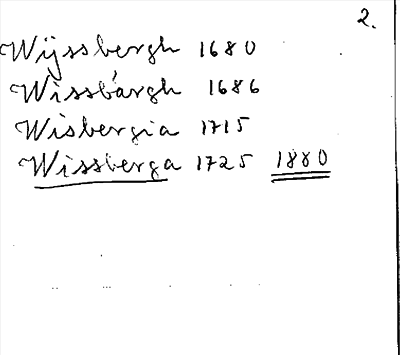 2.
Wijssbergh 1680
Wissbargh 1686
Wisbergia 1715
Wissberga 1725 1880